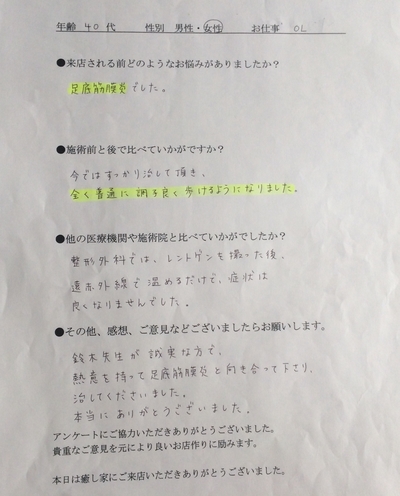 年齢 40代 性別 男性・女性 お仕事 OL
●来店される前どのようなお悩みがありましたか？
足底筋膜炎でした。
●施術前と後で比べていかがですか？
今ではすっかり治して頂き、
全く普通に調子良く歩けるようになりました。
●他の医療機関や施術院と比べていかがでしたか？
整形外科では、レントゲンを撮った後、
遠赤外線で温めるだけで、症状は
良くなりませんでした。
●その他、感想、ご意見などございましたらお願いします。
鈴木先生が誠実な方で、
熱意を持って足底筋膜炎と向き合って下さり、
治してくださいました。
本当にありがとうございました。
アンケートにご協力いただきありがとうございました。
貴重なご意見を元により良いお店作りに励みます。
本日は癒し家にご来店いただきありがとうございました。